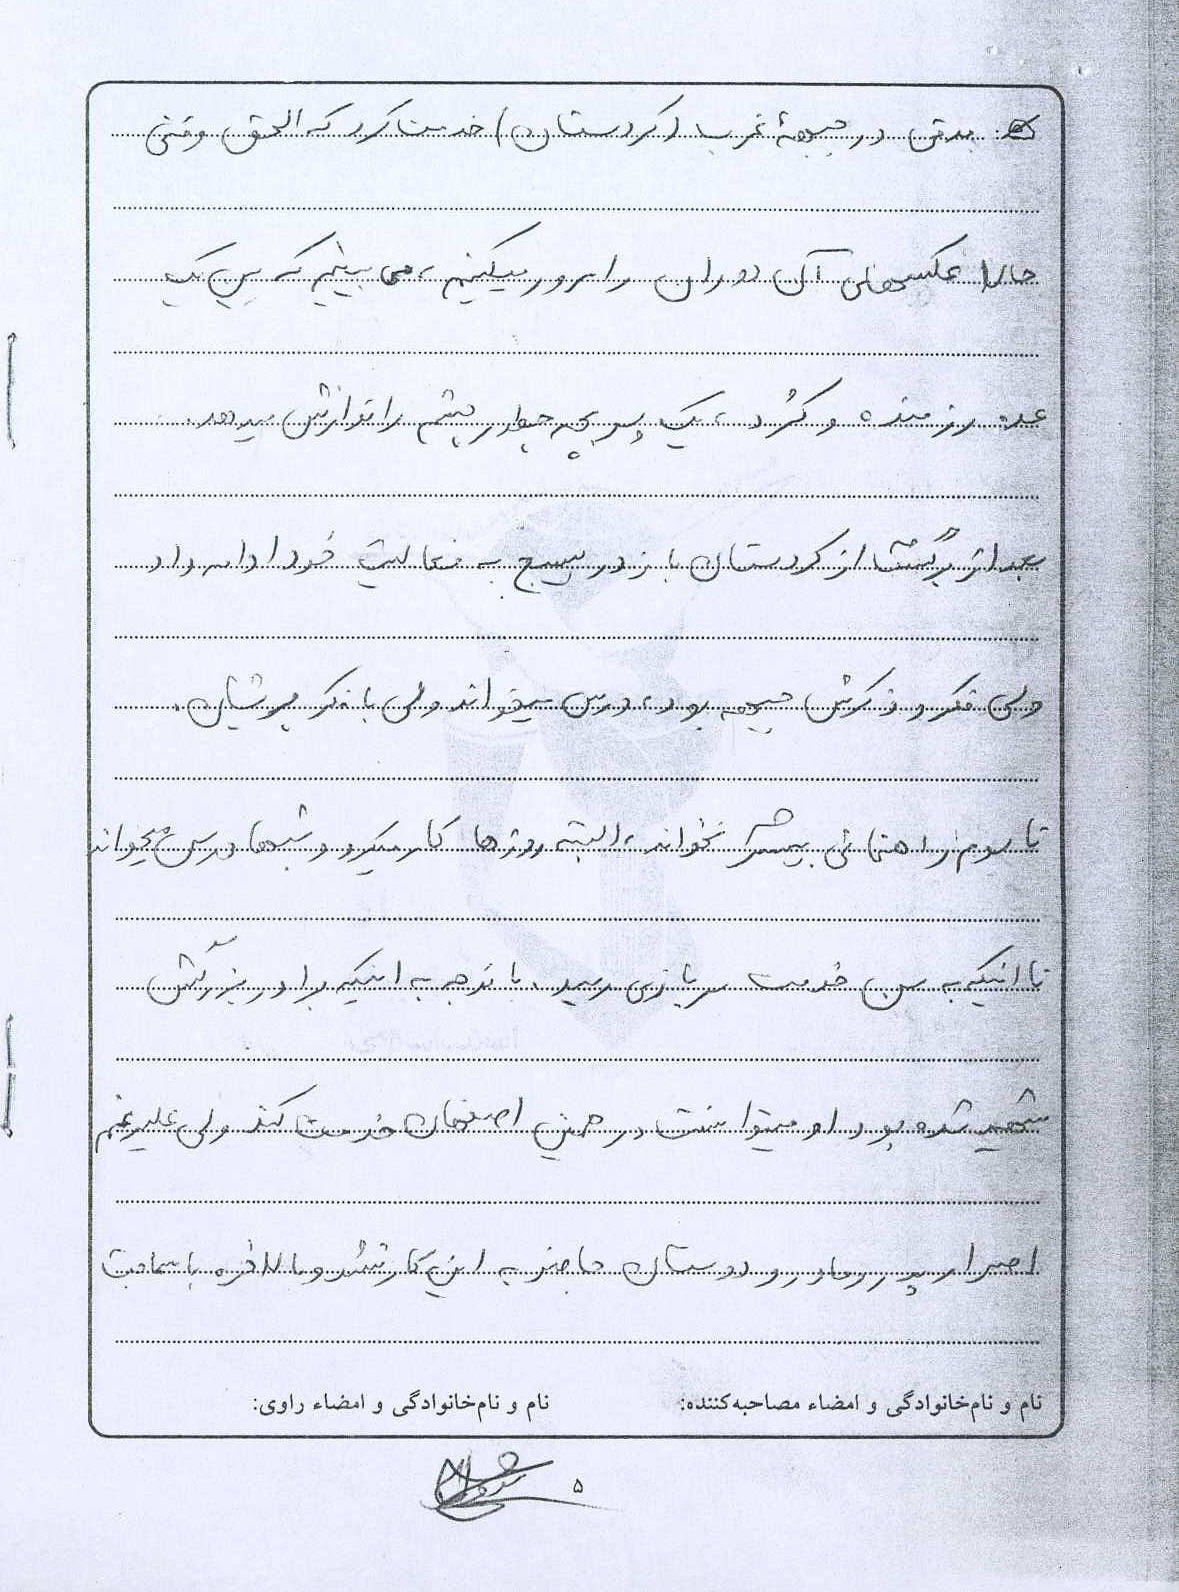 که مدتی در جبههٔ غرب (کردستان) خدمت کرد که الحق وقتی
حالا عکسهای آن دوران را مرور میکنیم، می بینیم که بین یک
عده رزمنده و کُرد، یک پسر بچه چطور چشم را نوازش میدهد.
بعد از برگشت از کردستان باز در بسیج به فعالیت خود ادامه داد
ولی فکر و ذکرش جبهه بود، درس میخواند ولی با فکر پریشان.
تا سوم راهنمائی بیشتر نخواند، البته روزها کار میکرد و شبها درس میخواند
تا اینکه به سن خدمت سربازی رسید. با توجه به اینکه برادر بزرگش
شهید شده بود او میتوانست در همین اصفهان خدمت کند ولی علیرغم
اصرار پدر و مادر و دوستان حاضر به این کار نشد و بالاخره با سماجت
نام و نام‌خانوادگی و امضاء مصاحبه‌کننده: نام و نام‌خانوادگی و امضاء راوی:
۵